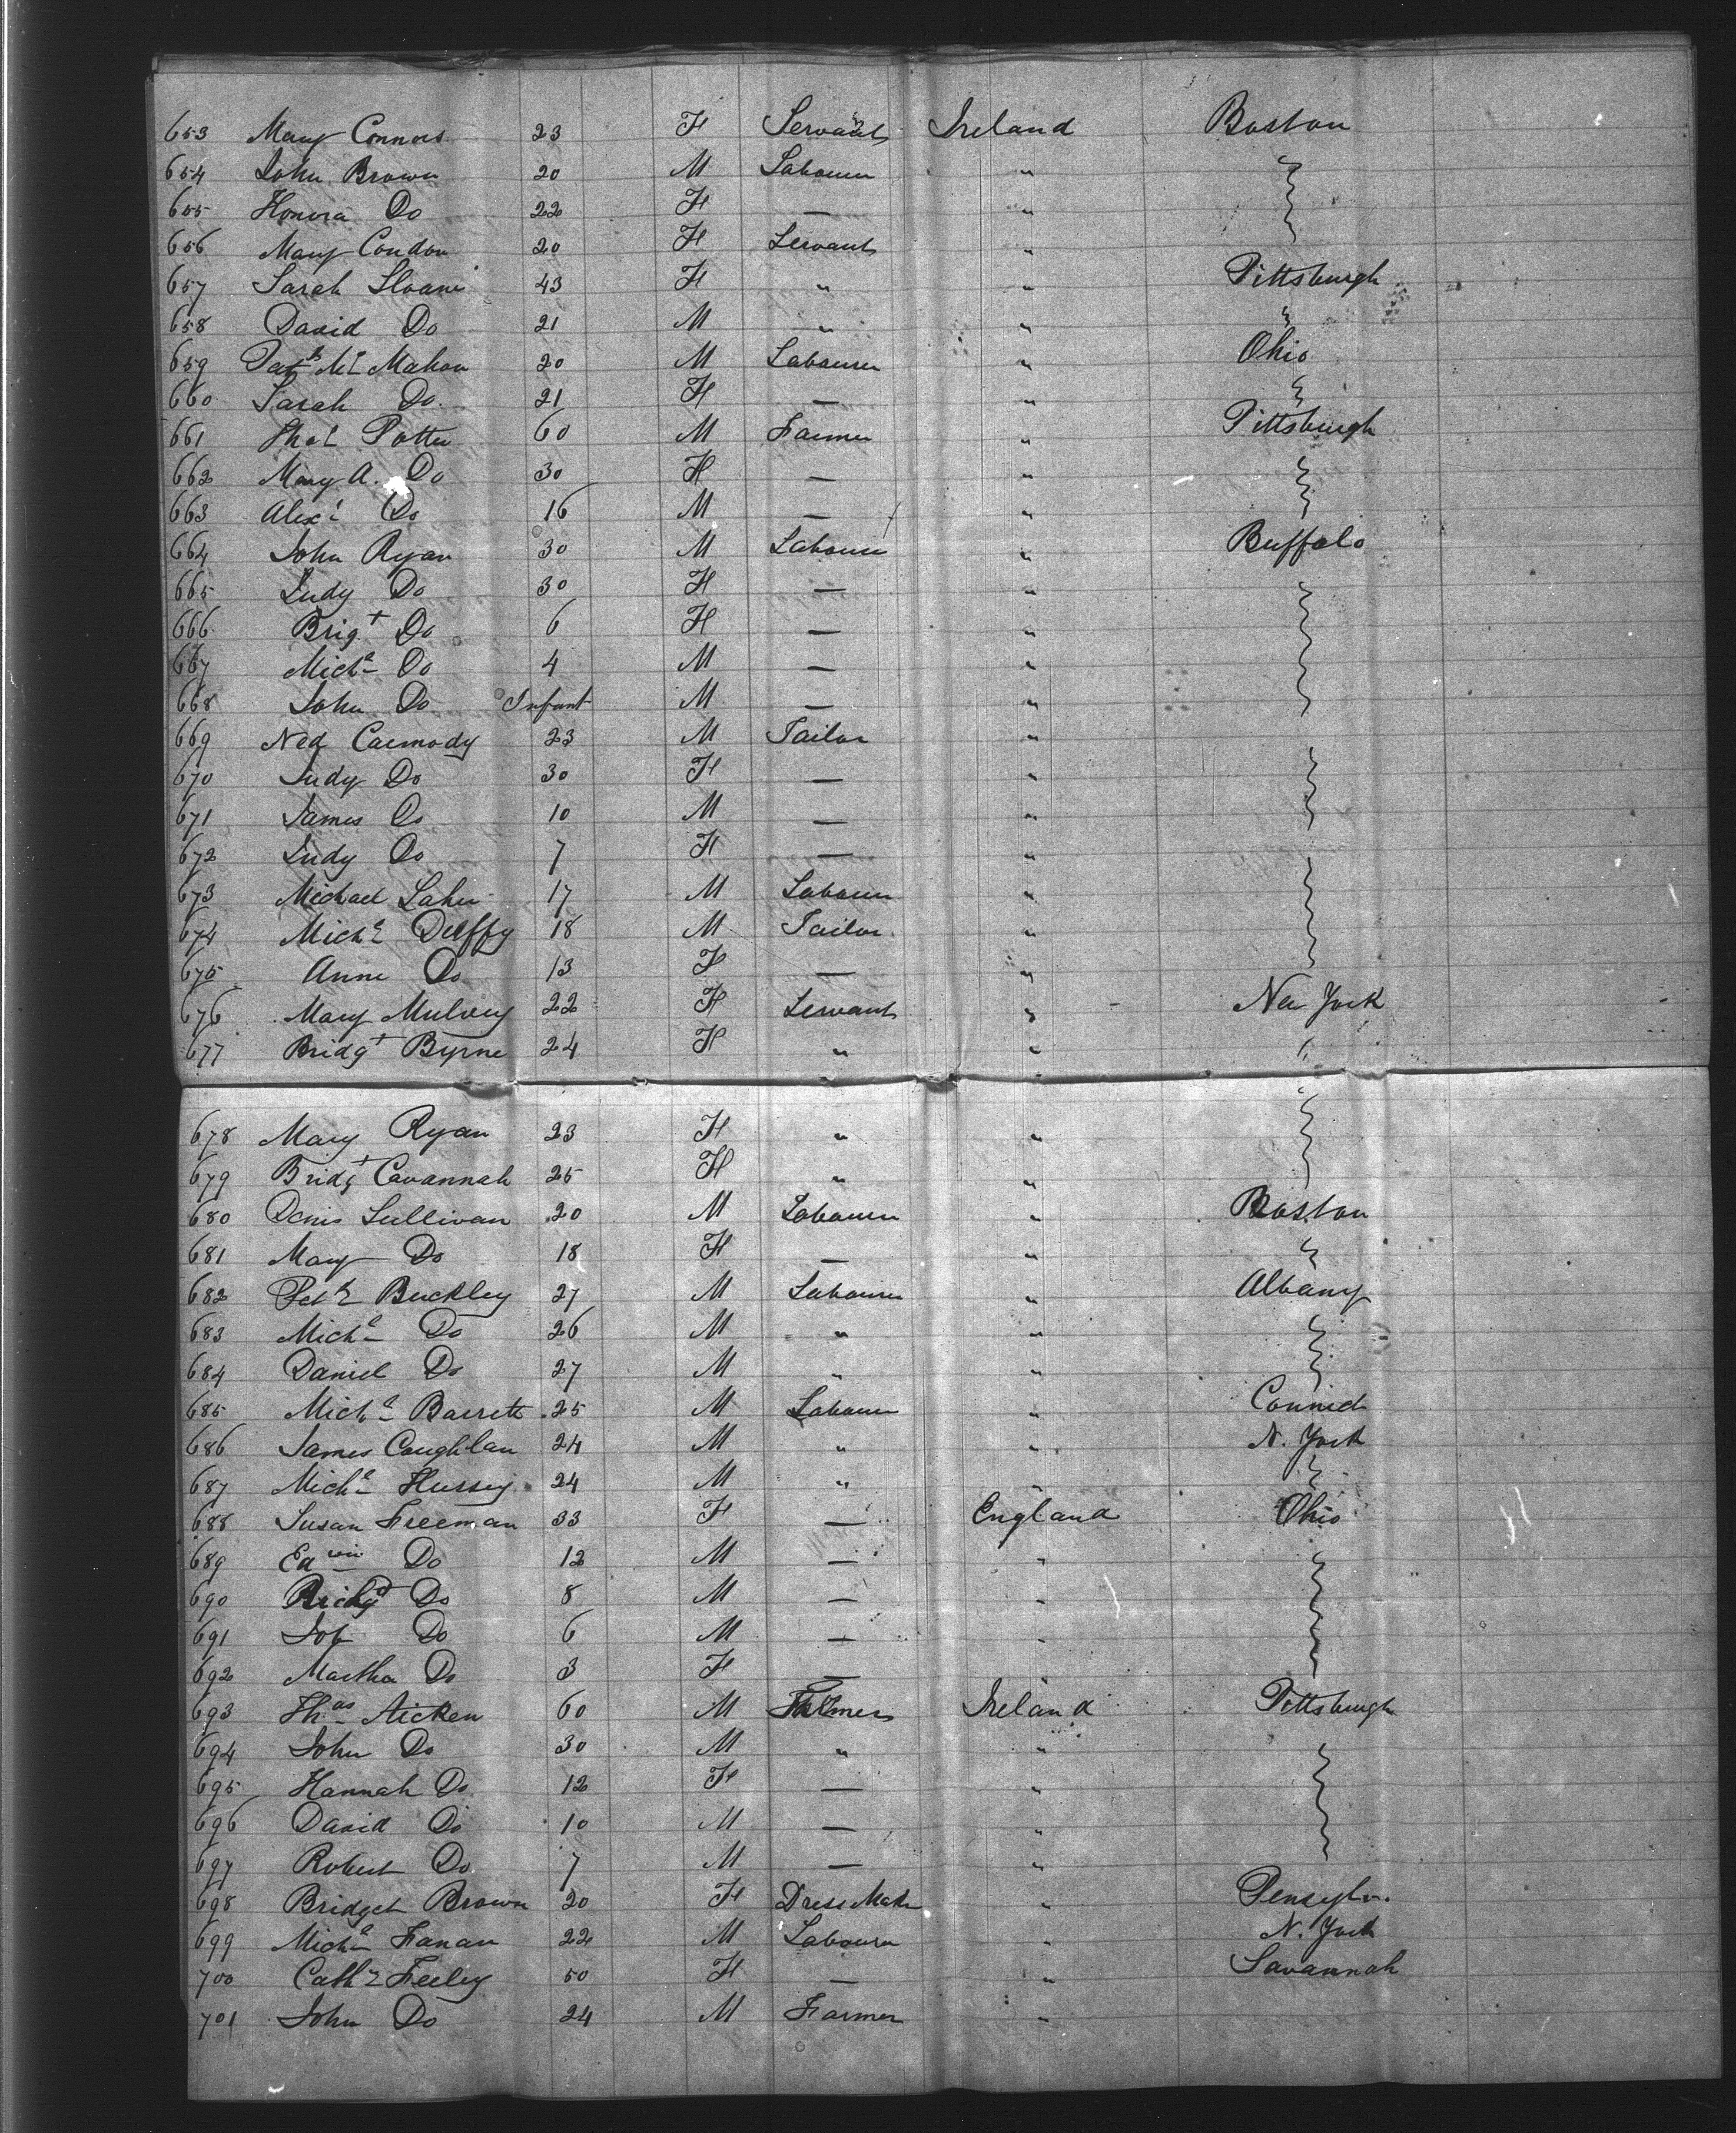 653 Mary Connors 23 F Servant Ireland Boston
654 John Brown 20 M Labourer "
655 Honora Do 22 F — "
656 Mary Condon 20 F Servant "
657 Sarah Sloane 43 F " " Pittsburgh
658 David Do 21 M " "
659 Patk Mc Mahon 20 M Labourer " Ohio
660 Sarah Do 21 F — "
661 Thos Potter 60 M Farmer " Pittsburgh
662 Mary A. Do 30 F — "
663 Alexr Do 16 M — "
664 John Ryan 30 M Labourer " Buffalo
665 Judy Do 30 F — "
666 Brigt Do 6 F — "
667 Michl Do 4 M — "
668 John Do Infant M — "
669 Ned Carmody 23 M Tailor "
670 Judy Do 30 F — "
671 James Do 10 M — "
672 Judy Do 7 F — "
673 Michael 17 M Labourer "
674 Michl Duffy 18 M Tailor "
675 Anne Do 13 F — "
676 Mary Mulvey 22 F Servant " New York
677 Bridgt Byrne 24 F " " "
678 Mary Ryan 23 F " "
679 Bridgt Cavannah 25 F " "
680 Denis Sullivan 20 M Labourer " Boston
681 Mary Do 18 F — "
682 Buckley 27 M Labourer " Albany
683 Michl Do 26 M " "
684 Daniel Do 27 M " "
685 Michl Barrett 25 M Labourer "
686 James Coughlan 24 M " " N. York
687 Michl Hussey 24 M " "
688 Susan Freeman 33 F — England Ohio
689 Edwin Do 12 M — "
690 Do 8 M — "
691 Do 6 M — "
692 Martha Do 3 F — "
693 Thas Aicken 60 M Farmer Ireland Pittsburgh
694 John Do 30 M " "
695 Hannah Do 12 F — "
696 David Do 10 M — "
697 Robert Do 7 M — "
698 Bridget Brown 20 F Dress Maker " Pensylv.
699 Michl Fanan 22 M Labourer " N. York
700 Cathe Feeley 50 F — " Savannah
701 John Do 24 M Farmer "